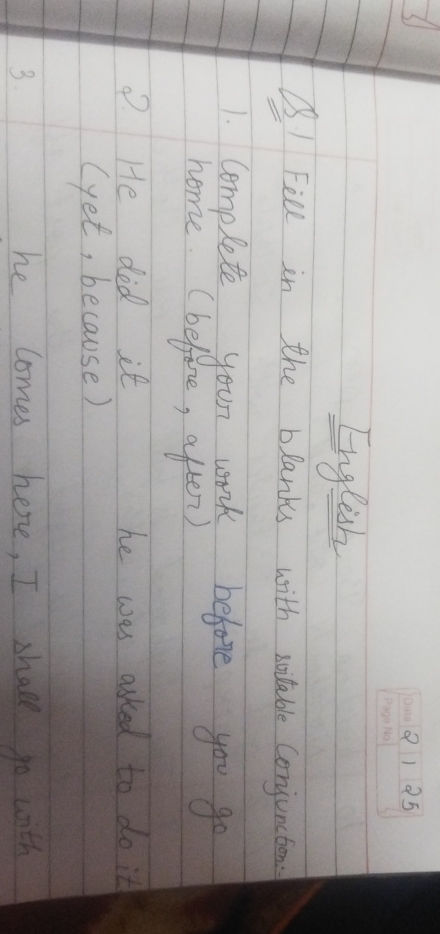 Date 2 1 25
Page No
English
Q.1 Fill in the blanks with suitable Conjunction:-
1. Complete your work before you go
home. (before, after)
2. He did it he was asked to do it.
(yet, because)
3. he comes here, I shall go with